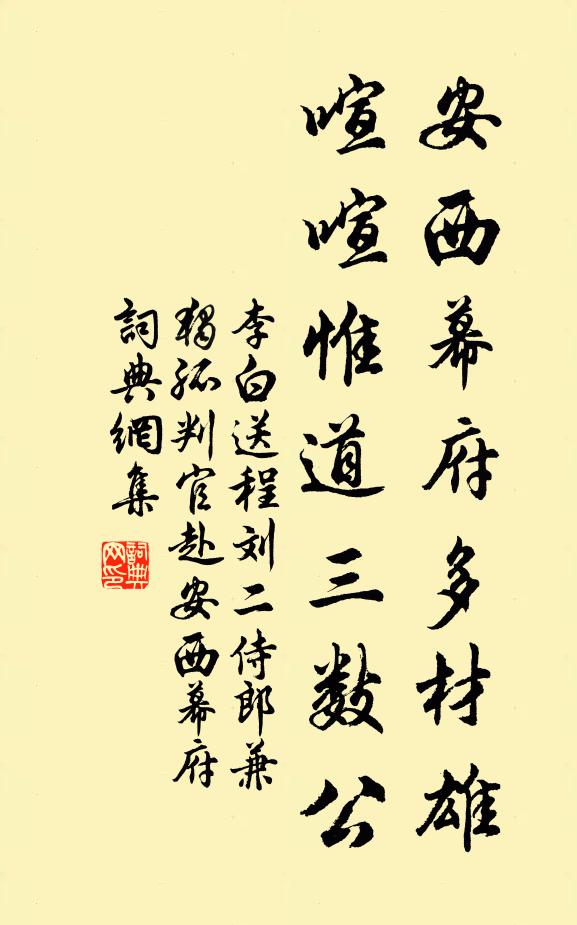 安西幕府多材雄
喧喧惟道三数公
李白送程刘二侍郎兼
独孤判官赴安西幕府
詞典網集
詞典
网印